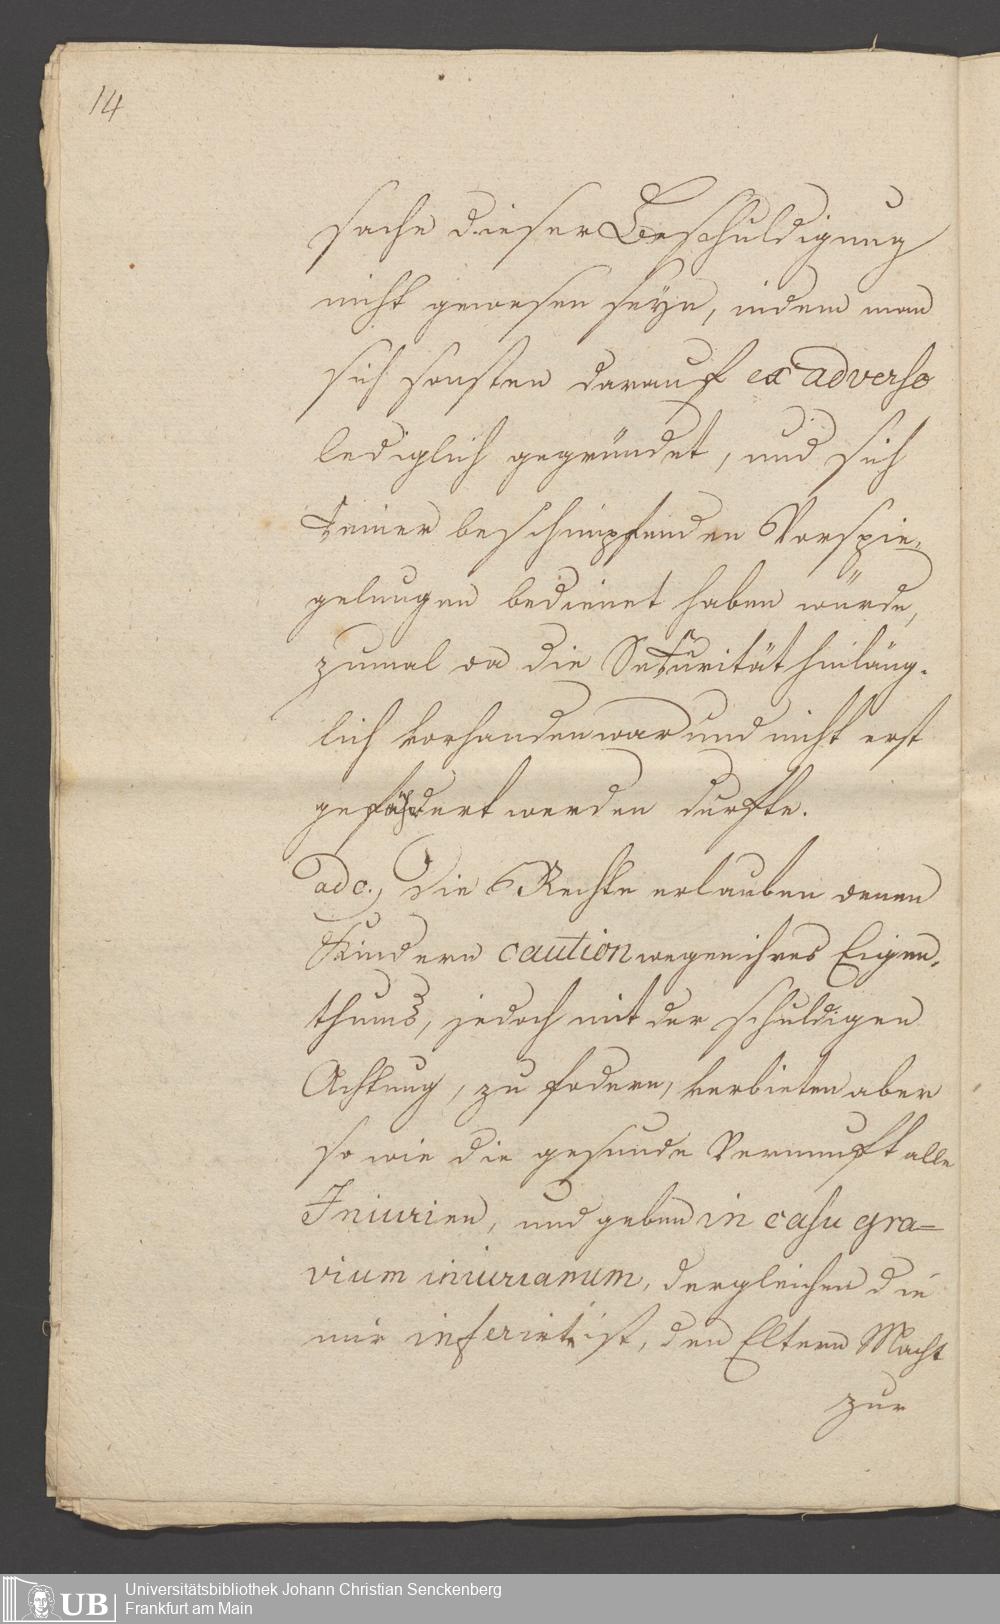 14
sache dieser Beschuldigung
nicht gewesen seyn, indem man
sich sonsten darauf ex adverso
lediglich gegründet, und sich
keiner beschimpfenden Vorspie-
gelungen bedienet haben würde,
zumal da die Sekurität hinläng-
lich vorhanden war und nicht erst
gefodert werden durfte.
ad c.) Die Rechte erlauben denen
Kindern caution wegen ihres Eigen-
thums, jedoch mit der schuldigen
Achtung, zu fodern, verbieten aber
so wie die gesunde Vernunft alle
Iniurien, und geben in casu gra=
vium iniuriarum, dergleichen die
mir inferirt ist, den Eltern Macht
zur
UB
Universitätsbibliothek Johann Christian Senckenberg
Frankfurt am Main